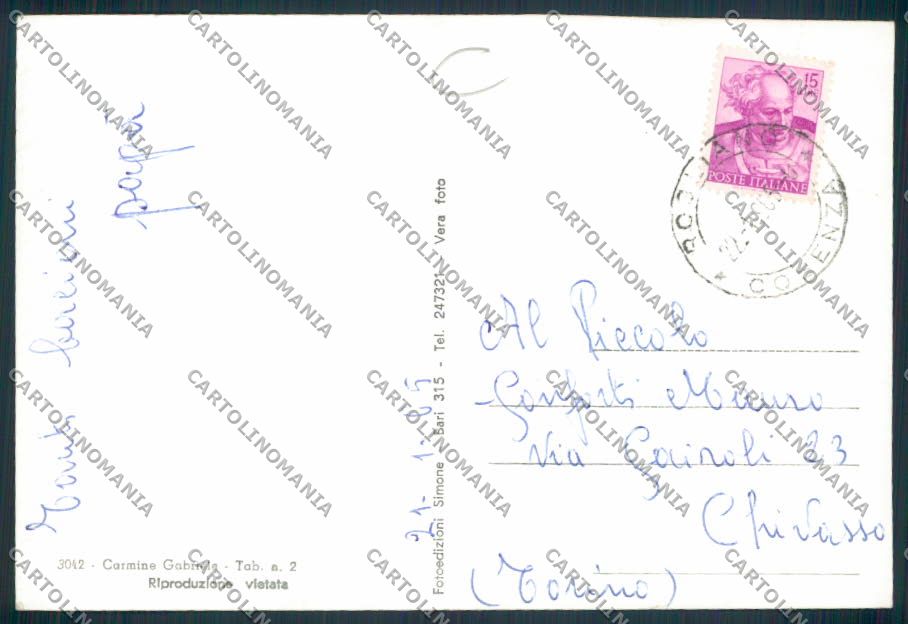 Tanti bacioni
papà
3042 - Carmine Gabriele - Tab. n. 2
Riproduzione vietata
Fotoedizioni Simone - Bari 315 - Tel. 247321 - Vera foto
21-1-65
15
POSTE ITALIANE
COSENZA
Al Piccolo
Conforti Mauro
Via Cairoli 23
Chivasso
(Torino)
CARTOLINOMANIA